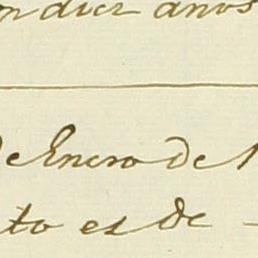 en diez años
de Enero de 1
to es de